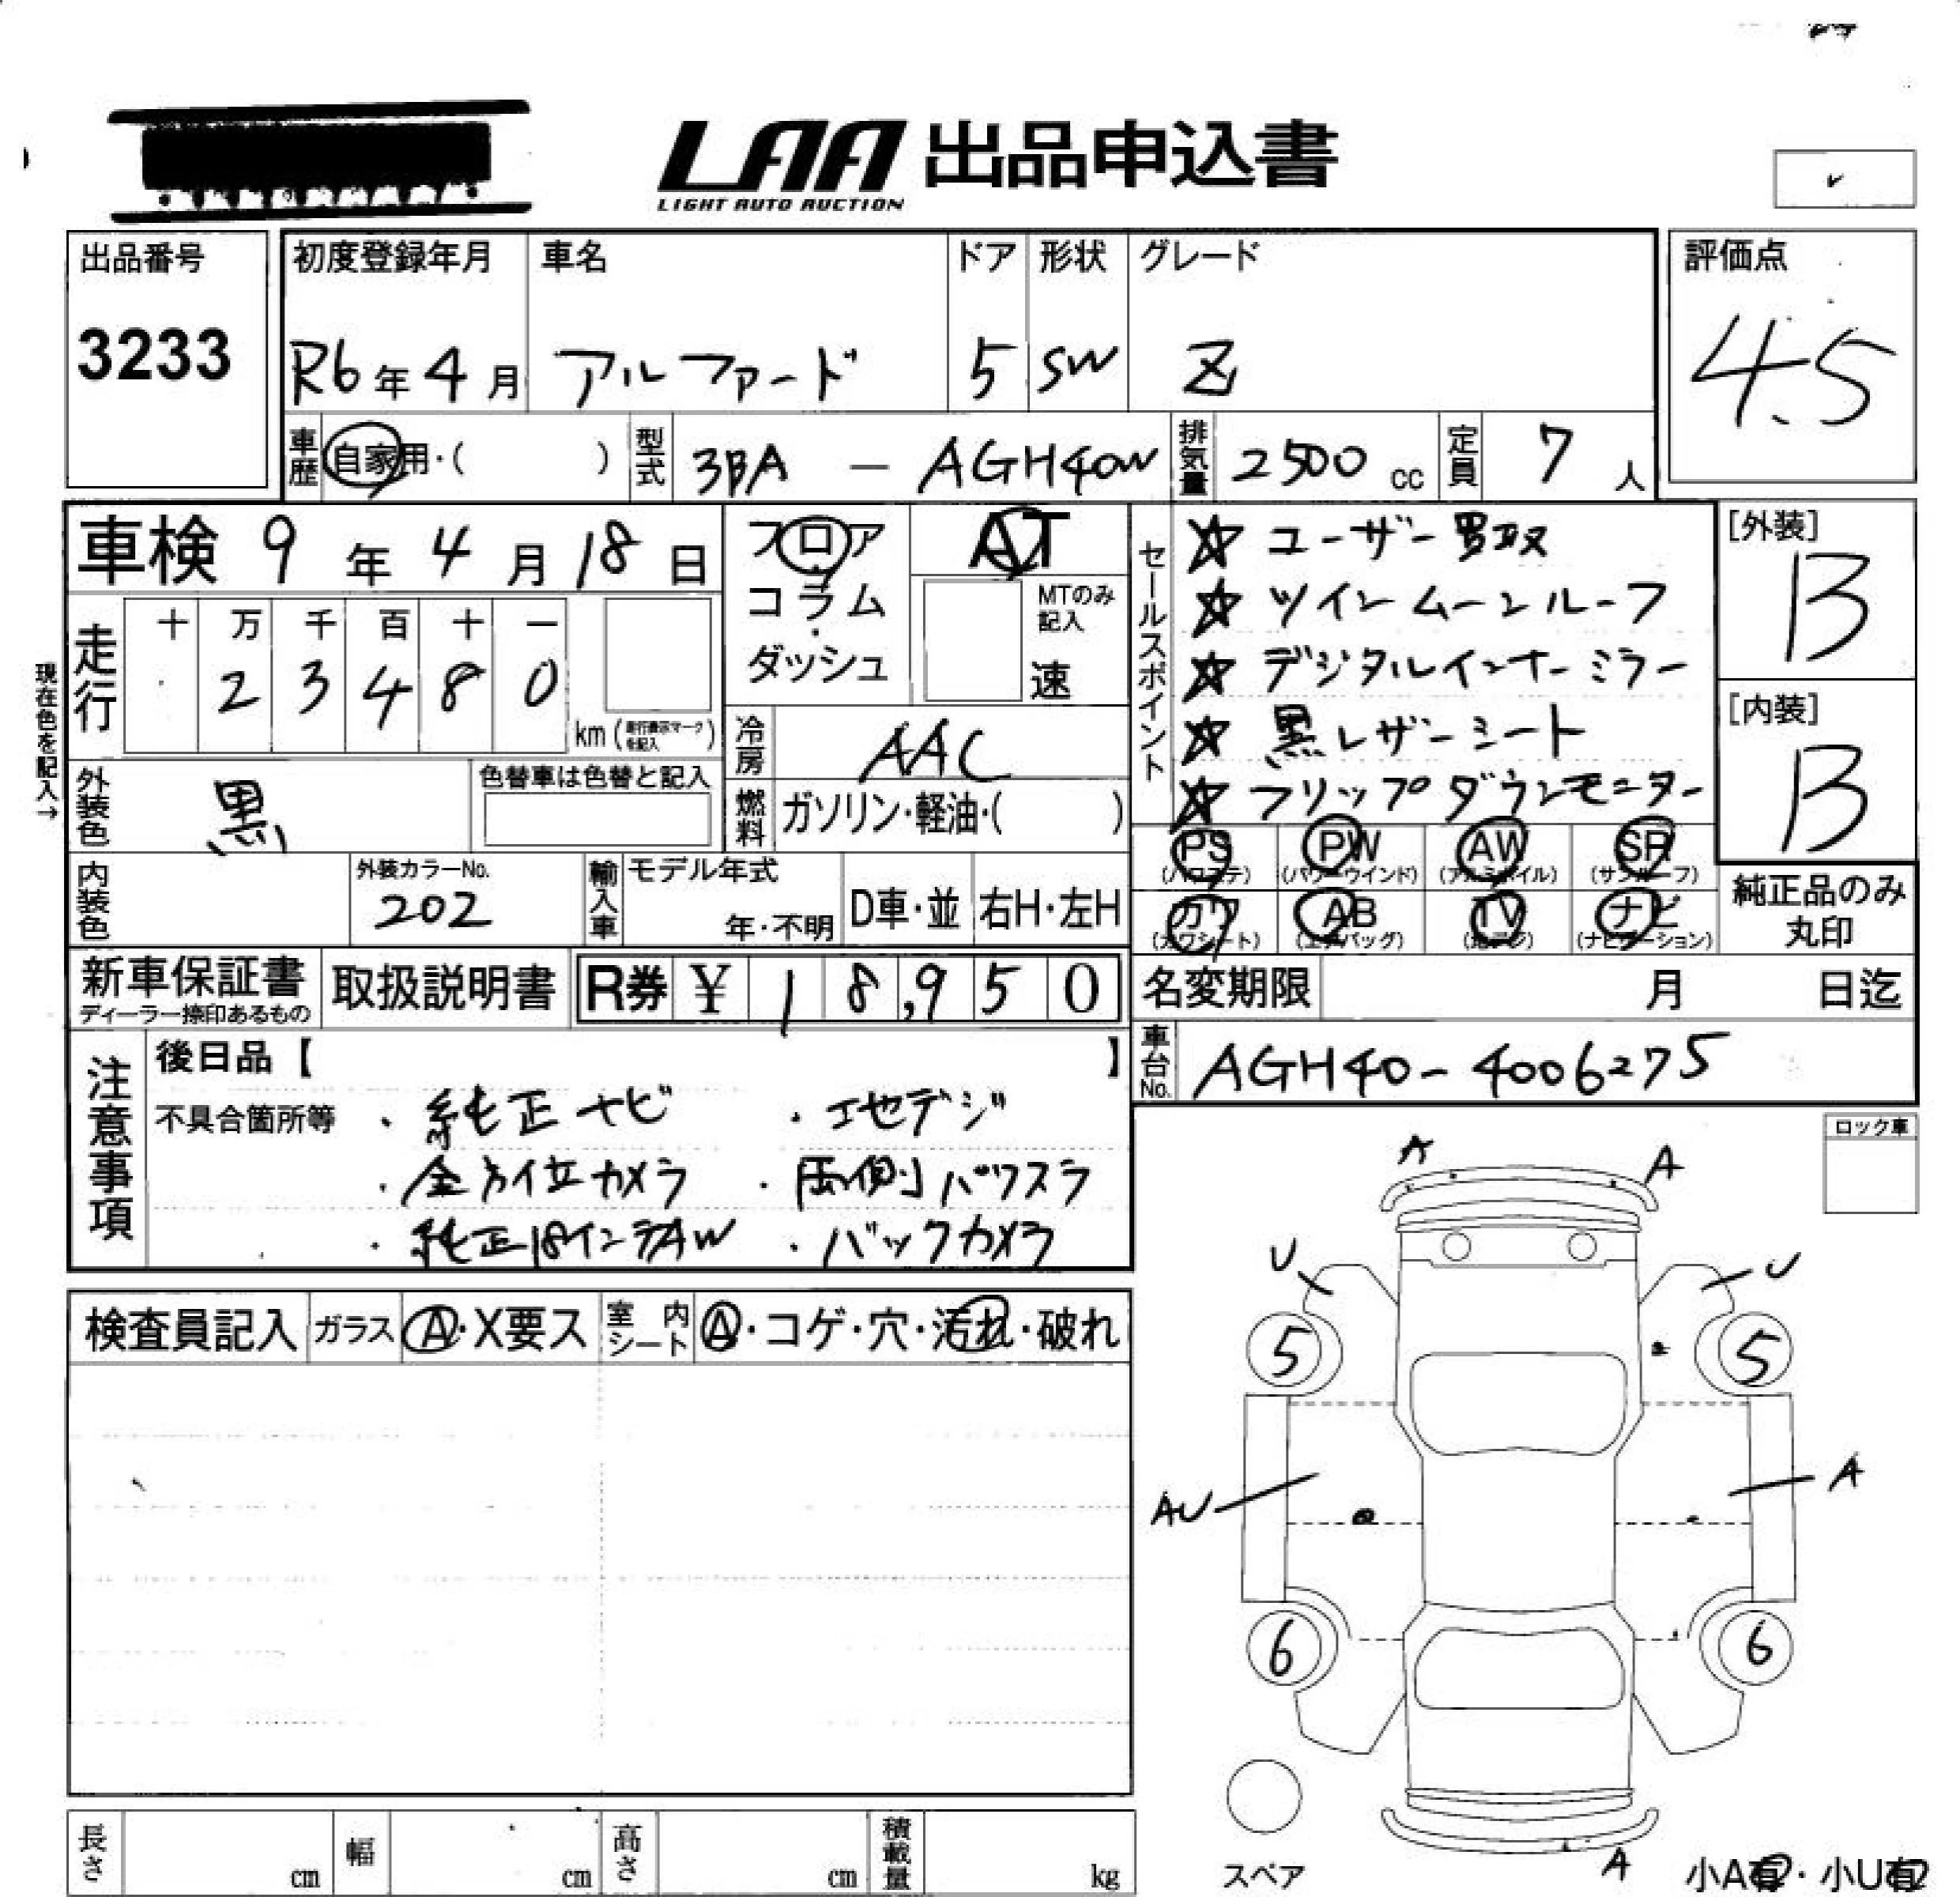 LAA 出品申込書
LIGHT AUTO AUCTION
出品番号
3233
初度登録年月 車名 ドア 形状 グレード
R6年4月 アルファード 5 SW Z
評価点
4.5
車歴 自家用・( ) 型式 3BA - AGH40W 排気量 2500cc 定員 7人
車検 9年4月18日
フロア
コラム
・
ダッシュ
AT
MTのみ
記入
速
走行
十 万 千 百 十 一
2 3 4 8 0
km(走行表示マークを記入)
現在色を記入→
外装色 黒
色替車は色替と記入
冷房 AAC
燃料 ガソリン・軽油・( )
内装色
外装カラーNo.
202
輸入車 モデル年式
年・不明
D車・並 右H・左H
セールスポイント
☆ ユーザー買取
☆ ツインムーンルーフ
☆ デジタルインナーミラー
☆ 黒レザーシート
☆ フリップダウンモニター
[外装]
B
[内装]
B
PS PW AW SR
(パワステ) (パワーウインド) (アルミホイル) (サンルーフ)
カワ AB TV ナビ
(カワシート) (エアバッグ) (地デジ) (ナビゲーション)
純正品のみ
丸印
新車保証書
ディーラー捺印あるもの
取扱説明書
R券 ¥ 18,950
名変期限 月 日迄
車台No. AGH40-4006275
注意事項
後日品【 】
不具合箇所等 ・純正ナビ ・エセデジ
・全方位カメラ ・両側パワスラ
・純正18インチAW ・バックカメラ
検査員記入 ガラス A・X要ス 室内シート A・コゲ・穴・汚れ・破れ
ロック車
A A
U U
5 5
AU A
6 6
スペア
A
小A有・小U有
長さ cm 幅 cm 高さ cm 積載量 kg